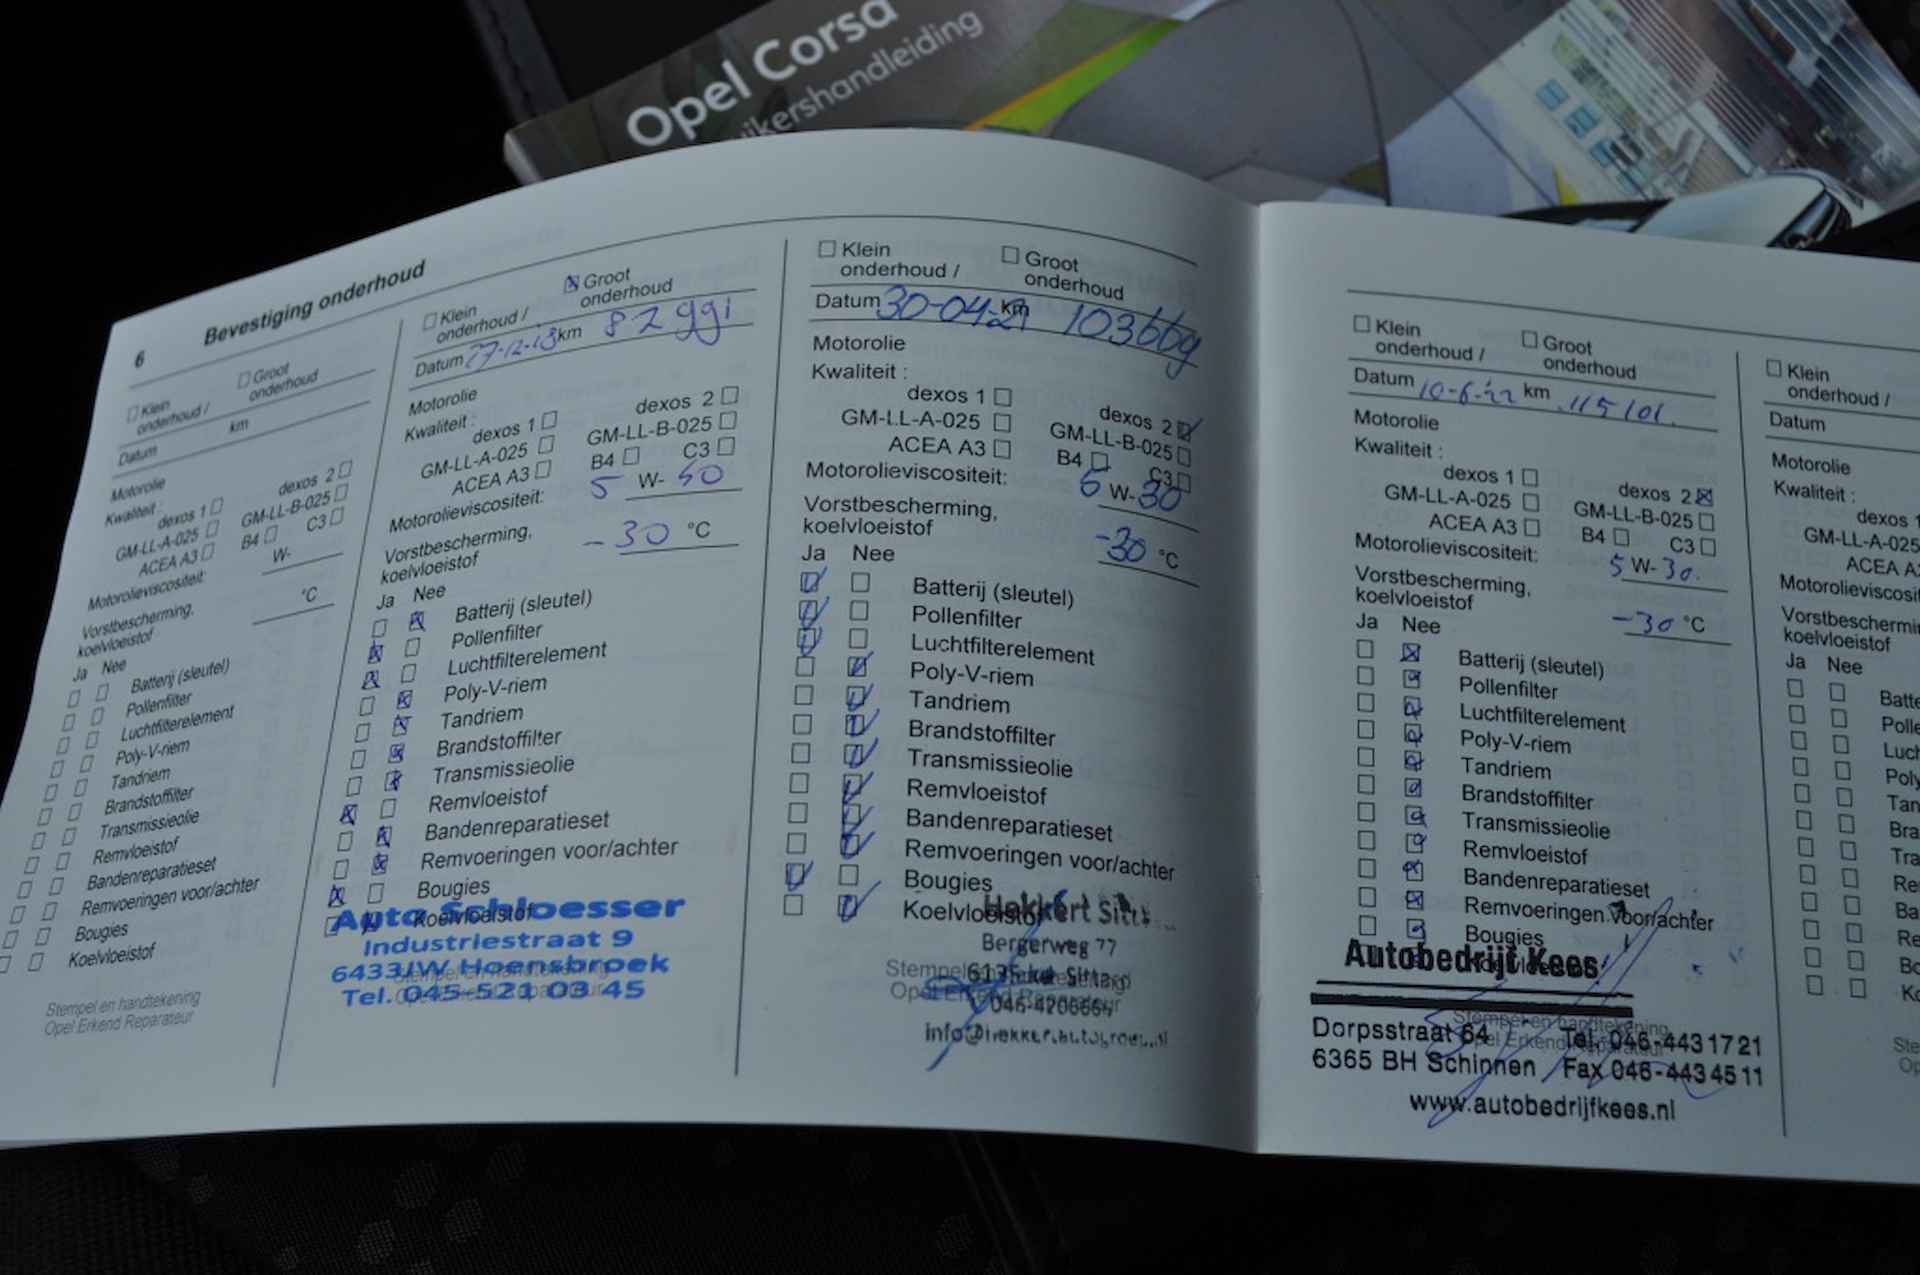 Opel Corsa
uikershandleiding
6 Bevestiging onderhoud
Klein onderhoud /
Groot onderhoud
Datum km
Motorolie
Kwaliteit :
dexos 1 dexos 2
GM-LL-A-025 GM-LL-B-025
ACEA A3 B4 C3
Motorolieviscositeit: W-
Vorstbescherming,
koelvloeistof °C
Ja Nee
Batterij (sleutel)
Pollenfilter
Luchtfilterelement
Poly-V-riem
Tandriem
Brandstoffilter
Transmissieolie
Remvloeistof
Bandenreparatieset
Remvoeringen voor/achter
Bougies
Koelvloeistof
Stempel en handtekening
Opel Erkend Reparateur
Klein onderhoud /
Groot onderhoud
Datum km
Motorolie
Kwaliteit :
dexos 1 dexos 2
GM-LL-A-025 GM-LL-B-025
ACEA A3 B4 C3
Motorolieviscositeit: 5 W-
Vorstbescherming,
koelvloeistof -30 °C
Ja Nee
Batterij (sleutel)
Pollenfilter
Luchtfilterelement
Poly-V-riem
Tandriem
Brandstoffilter
Transmissieolie
Remvloeistof
Bandenreparatieset
Remvoeringen voor/achter
Bougies
Koelvloeistof
Auto Schloesser
Industriestraat 9
6433JW Hoensbroek
Tel. 045-521 03 45
Klein onderhoud /
Groot onderhoud
Datum 30-04-21 km 103669
Motorolie
Kwaliteit :
dexos 1 dexos 2
GM-LL-A-025 GM-LL-B-025
ACEA A3 B4 C3
Motorolieviscositeit: W-30
Vorstbescherming,
koelvloeistof -30 °C
Ja Nee
Batterij (sleutel)
Pollenfilter
Luchtfilterelement
Poly-V-riem
Tandriem
Brandstoffilter
Transmissieolie
Remvloeistof
Bandenreparatieset
Remvoeringen voor/achter
Bougies
Koelvloeistof
Hekkert
Bergerweg
Stempel
Opel Erkend Reparateur
Klein onderhoud /
Groot onderhoud
Datum 10-6-'22 km 115101
Motorolie
Kwaliteit :
dexos 1 dexos 2
GM-LL-A-025 GM-LL-B-025
ACEA A3 B4 C3
Motorolieviscositeit: 5 W-30
Vorstbescherming,
koelvloeistof -30 °C
Ja Nee
Batterij (sleutel)
Pollenfilter
Luchtfilterelement
Poly-V-riem
Tandriem
Brandstoffilter
Transmissieolie
Remvloeistof
Bandenreparatieset
Remvoeringen voor/achter
Bougies
Autobedrijf Kees
Stempel en handtekening
Opel Erkend Reparateur
Dorpsstraat 64 Tel. 046-4431721
6365 BH Schinnen Fax 046-4434511
www.autobedrijfkees.nl
Klein
onderhoud /
Datum
Motorolie
Kwaliteit :
dexos 1
GM-LL-A-025
ACEA A3
Motorolieviscosit
Vorstbeschermin
koelvloeistof
Ja Nee
Batte
Polle
Luch
Poly
Tan
Bra
Tra
Re
Ba
Re
Bo
Ko
Ste
Op